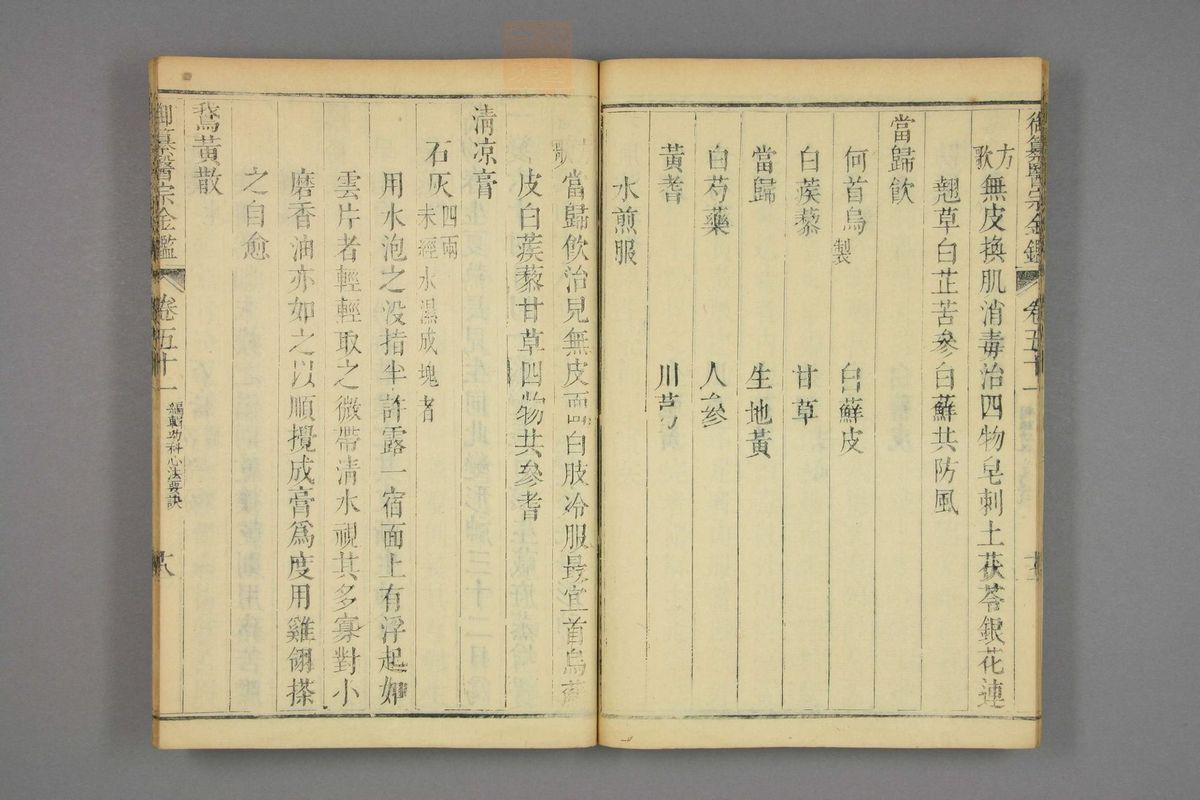 御纂醫宗金鑑 卷五十一
方歌
無皮換肌消毒治四物皂刺土茯苓銀花連
翹草白芷苦參白蘇共防風
當歸飲
何首烏製 白蘇皮
白蒺藜 甘草
當歸 生地黃
白芍藥 人參
黃耆 川芎
水煎服
歌
當歸飲治見無皮面白肢冷服最宜首烏
皮白蒺藜甘草四物共參耆
清凉膏
石灰四兩未經水濕成塊者
用水泡之没指半許露一宿面上有浮起如
雲片者輕輕取之微帶清水視其多寡對小
磨香油亦如之以順攪成膏爲度用雞翎搽
之自愈
鵞黃散
御纂醫宗金鑑 卷五十一 編輯幼科心法要訣 六